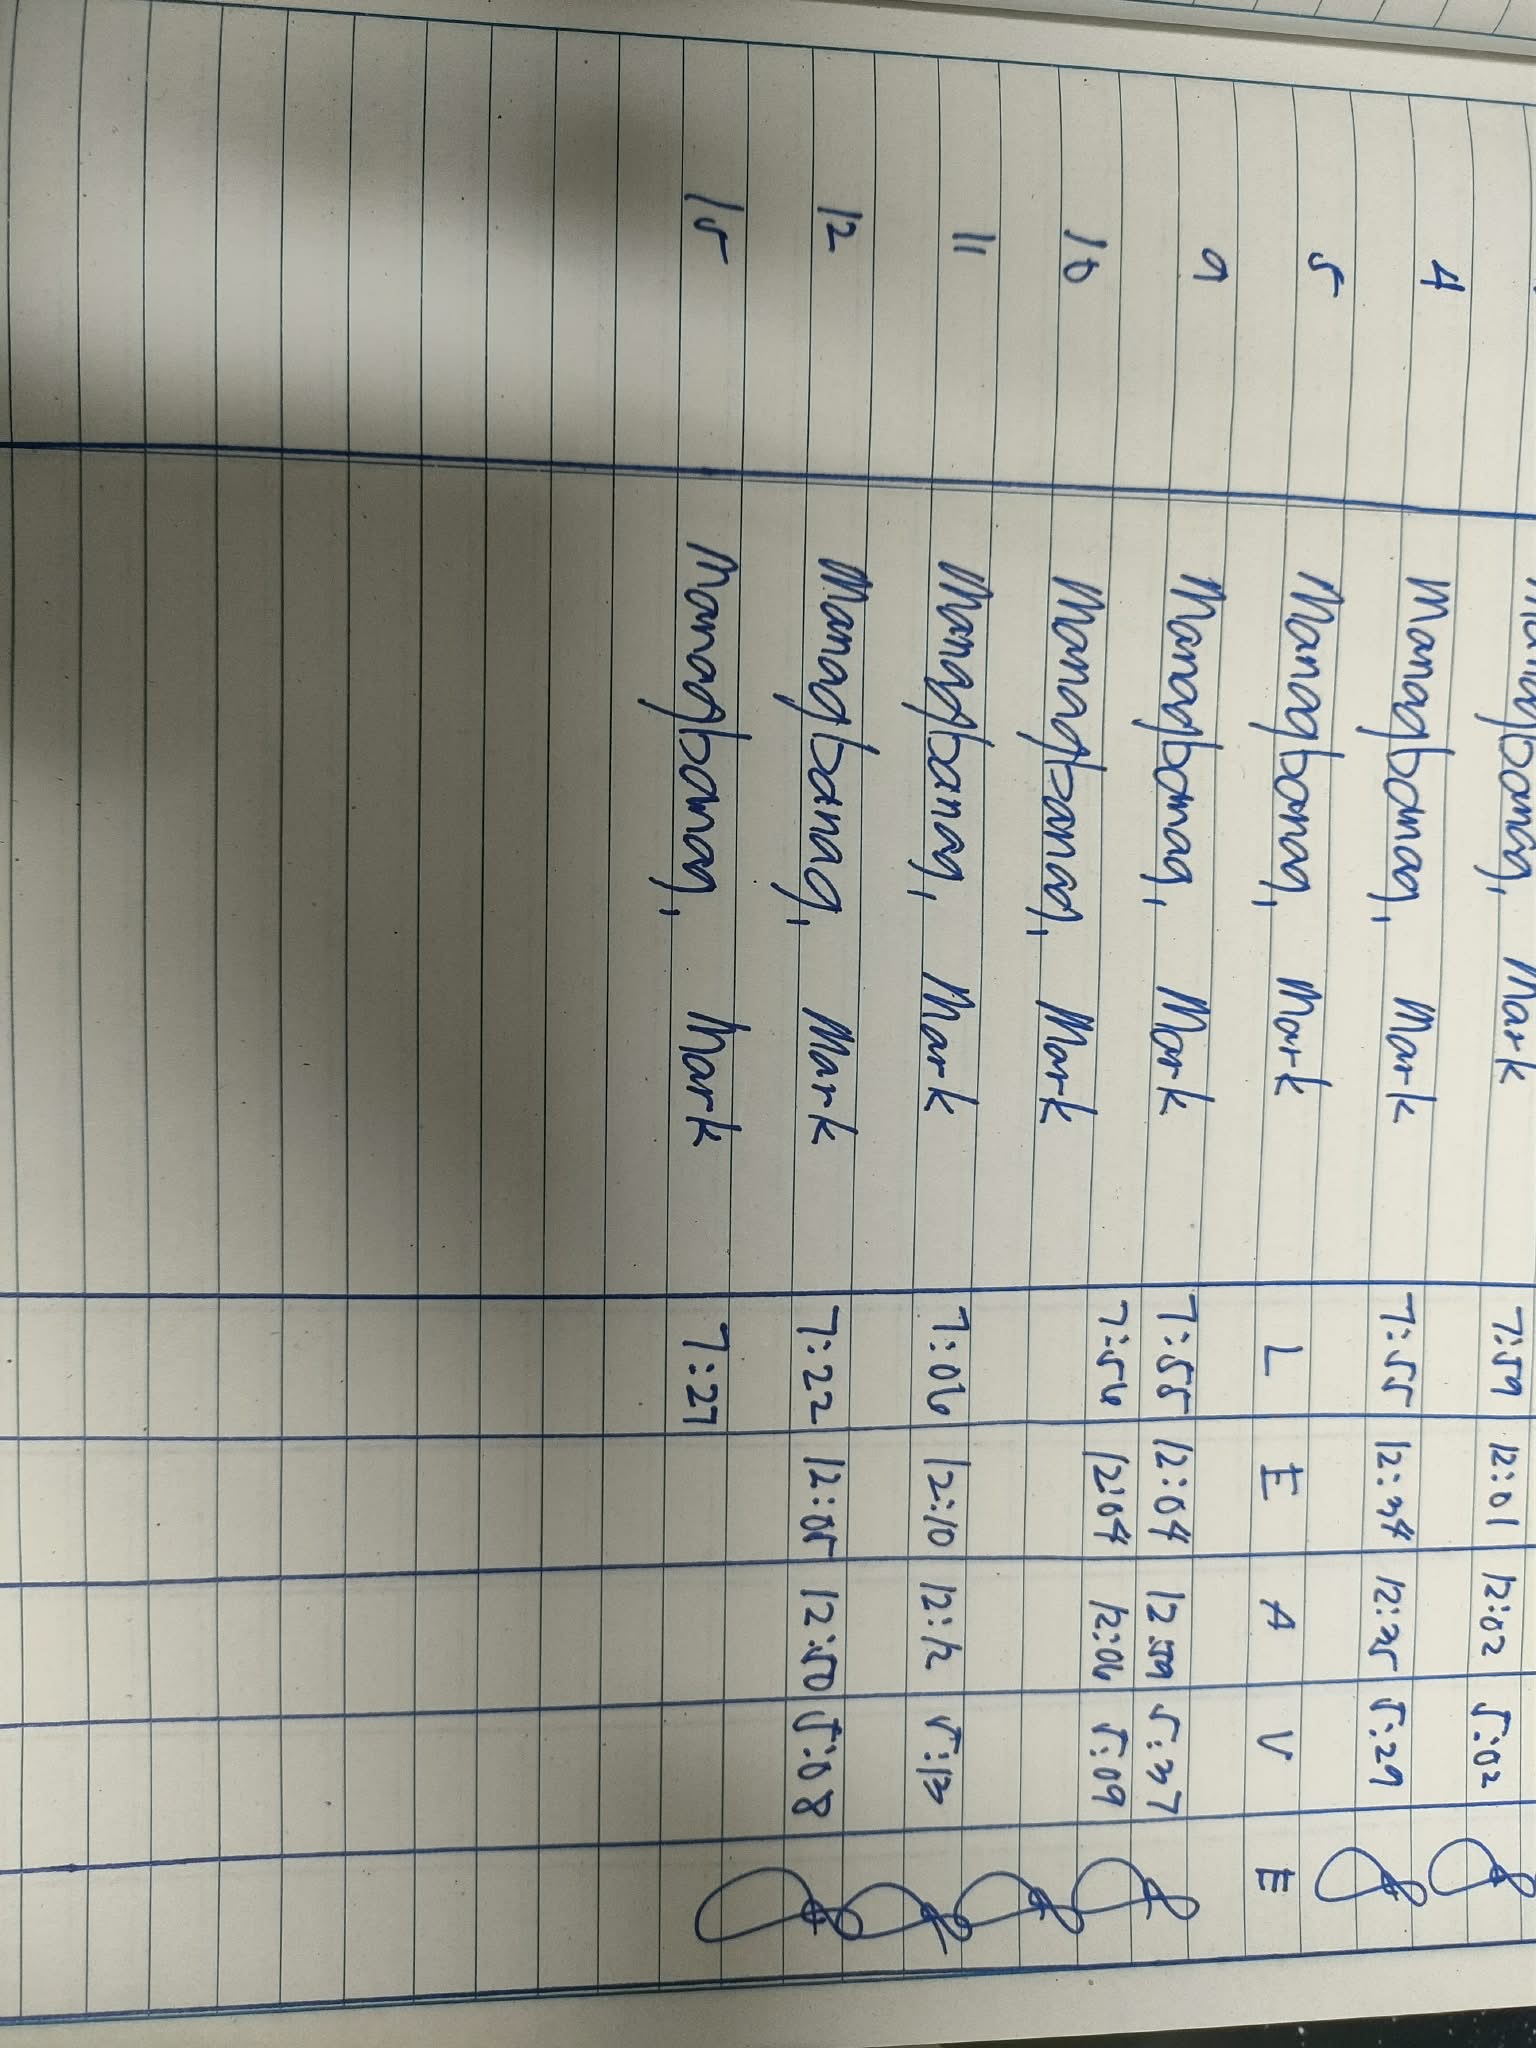 Managbanag, Mark 7:59 12:01 12:02 5:02
4 Managbanag, Mark 7:55 12:34 12:35 5:29
5 Managbanag, Mark L E A V E
9 Managbanag, Mark 7:55 12:04 12:59 5:37
10 Managbanag, Mark 7:56 12:04 12:06 5:09
11 Managbanag, Mark 7:06 12:10 12:12 5:13
12 Managbanag, Mark 7:22 12:05 12:50 5:08
15 Managbanag, Mark 7:27